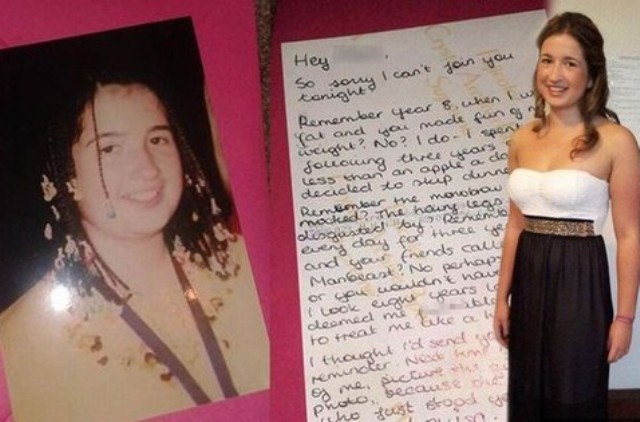 Hey ,
So sorry I can't join you
tonight
Remember year 8, when I w
fat and you made fun of m
weight? No? I do - I spent
following three years
less than an apple a da
decided to skip dinne
Remember the monobrow
mocked? The hairy legs
disgusted by? Remembe
every day for three ye
and your friends calle
Manbeast? No perhaps
or you wouldn't have
I look eight years l
deemed me able
to treat me like a h
I thought I'd send yo
reminder. Next time
of me, picture the gi
photo, because she
who just stood yo
Louisa.